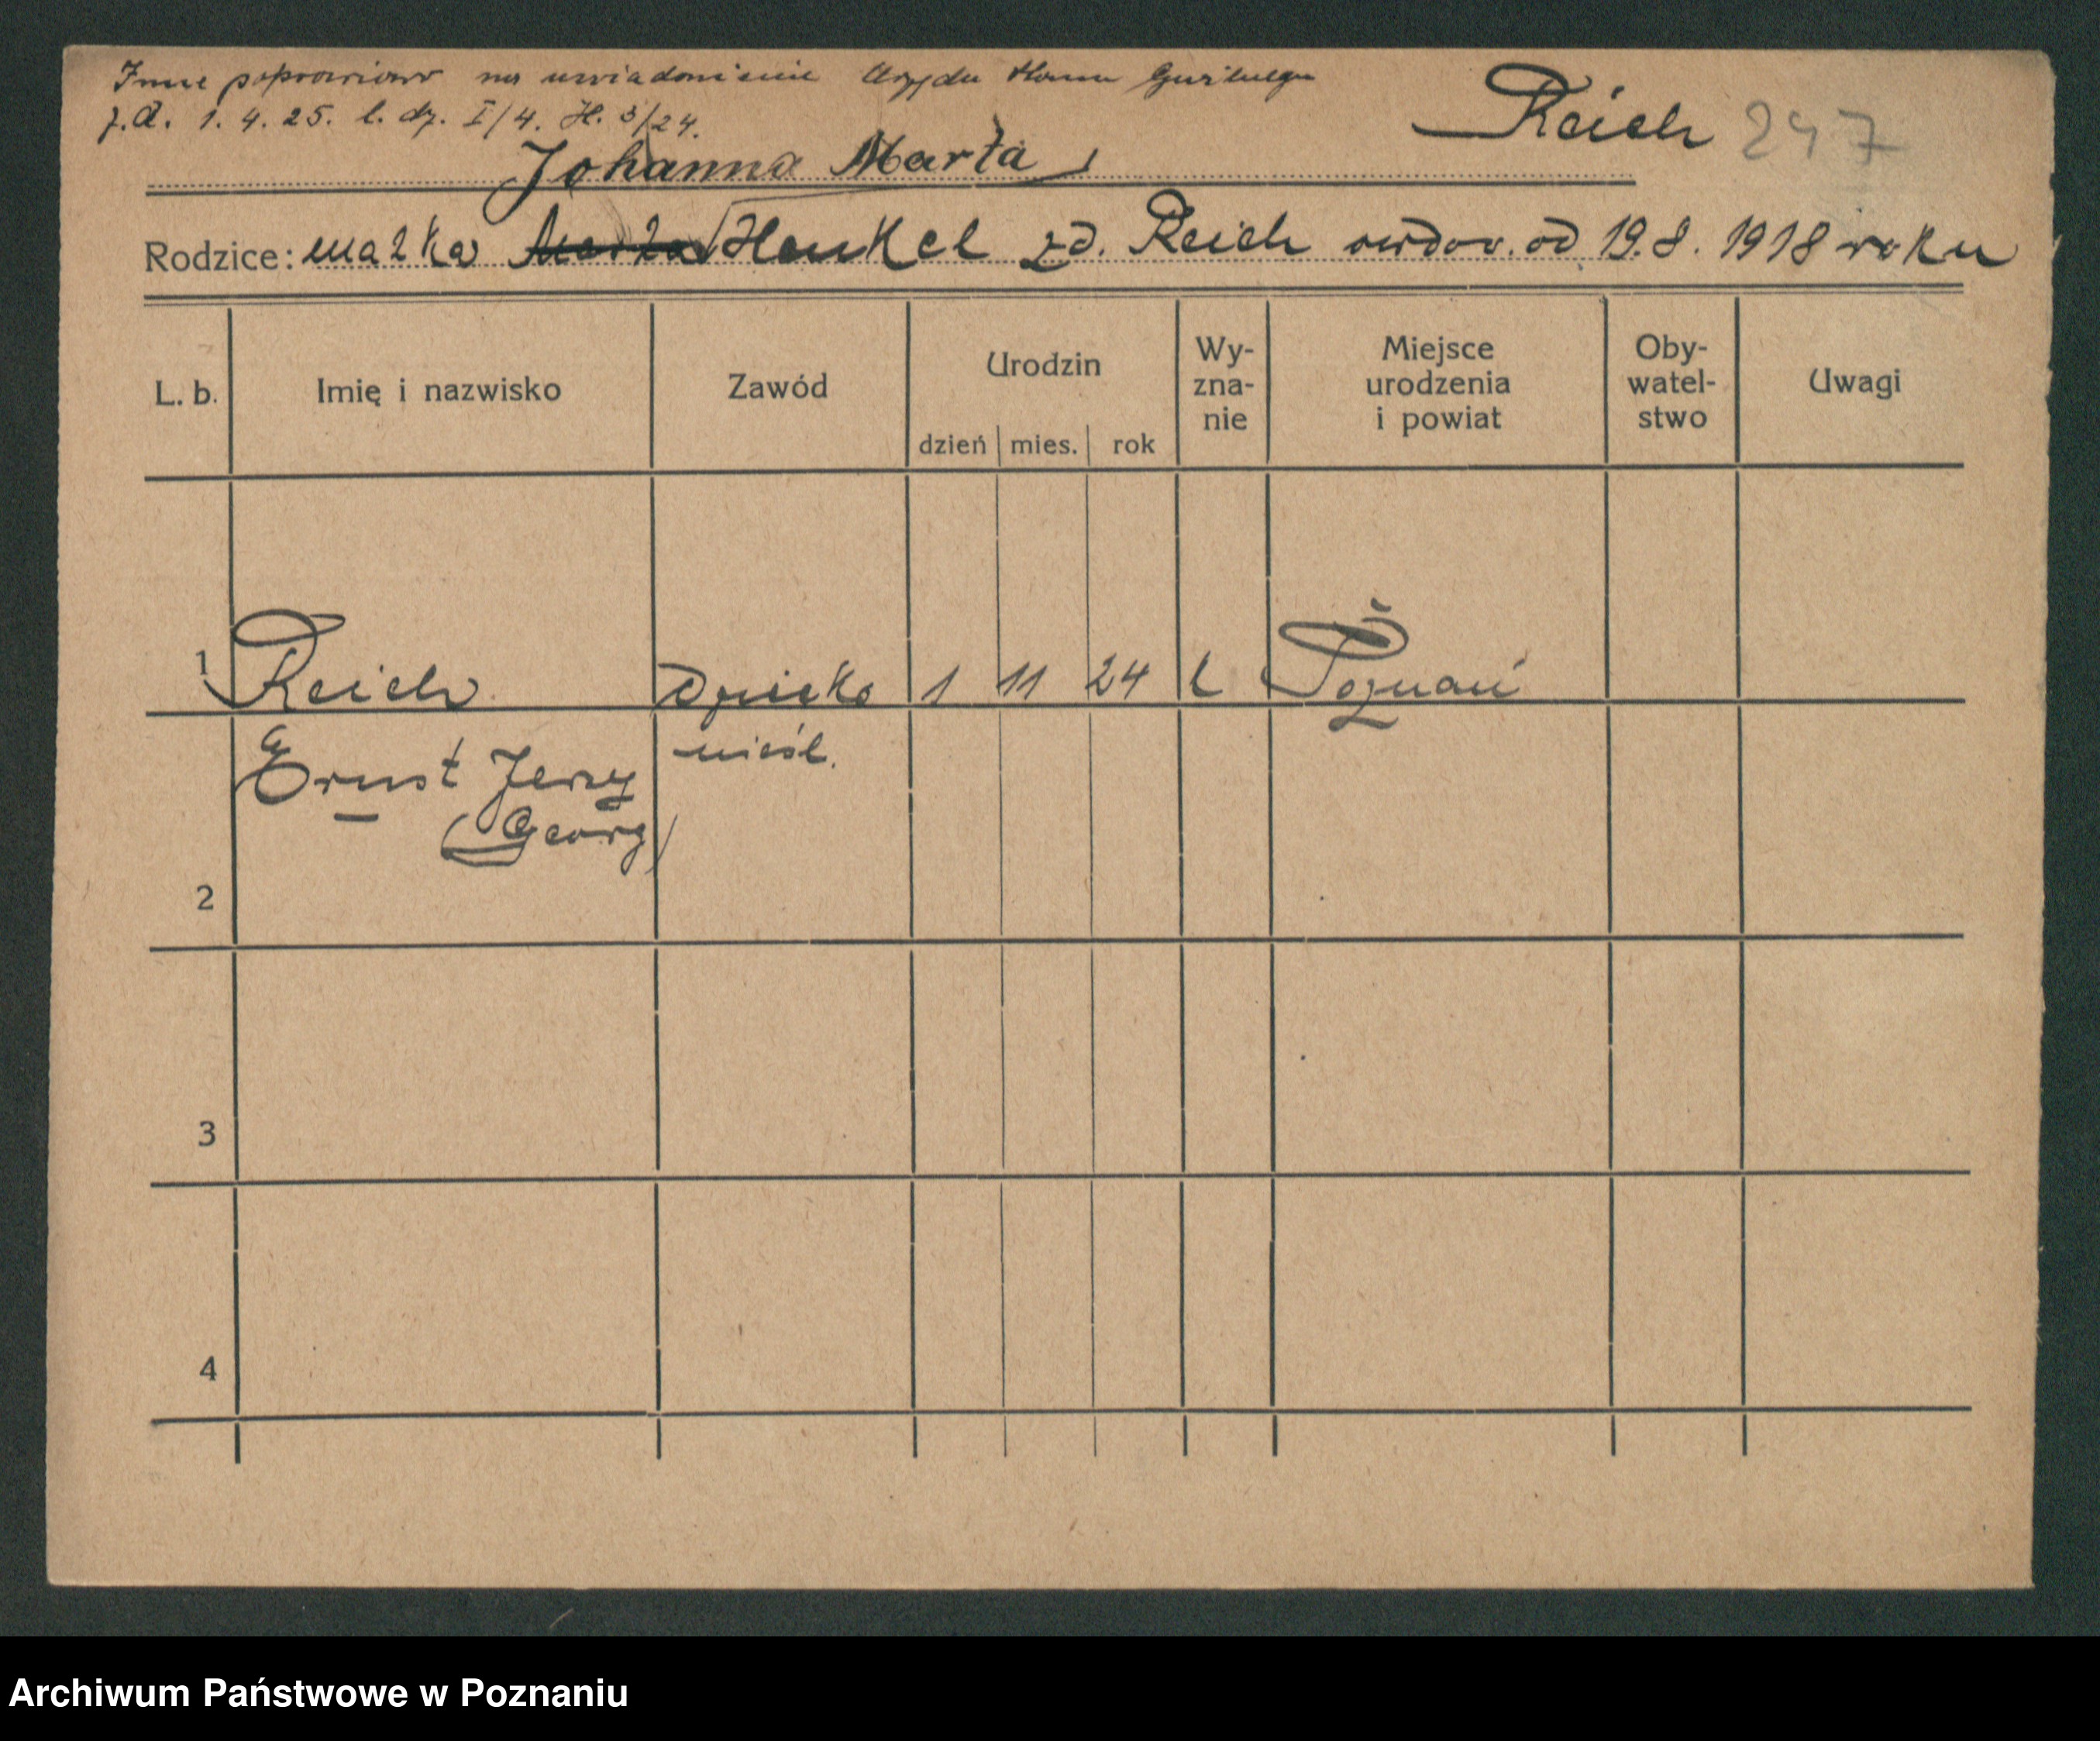 Imię poprawiono na uwiadomienie Urzędu Stanu Cywilnego
z d. 1. 4. 25. l. dz. I/4. H. 3/24.
Reich 247
Johanna Marta
Rodzice: matka Marta Henkel zd. Reich owdow. od 19.8. 1918 roku
L. b. Imię i nazwisko Zawód Urodzin dzień mies. rok Wy-znanie Miejsce urodzenia i powiat Oby-watel-stwo Uwagi
1 Reich Dziecko 1 11 24 L Poznań
Ernst Jerzy nieśl.
(Georg)
2
3
4
Archiwum Państwowe w Poznaniu